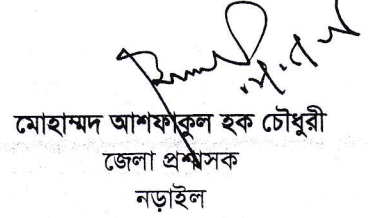 মোহাম্মদ আশফাকুল হক চৌধুরী
জেলা প্রশাসক
নড়াইল